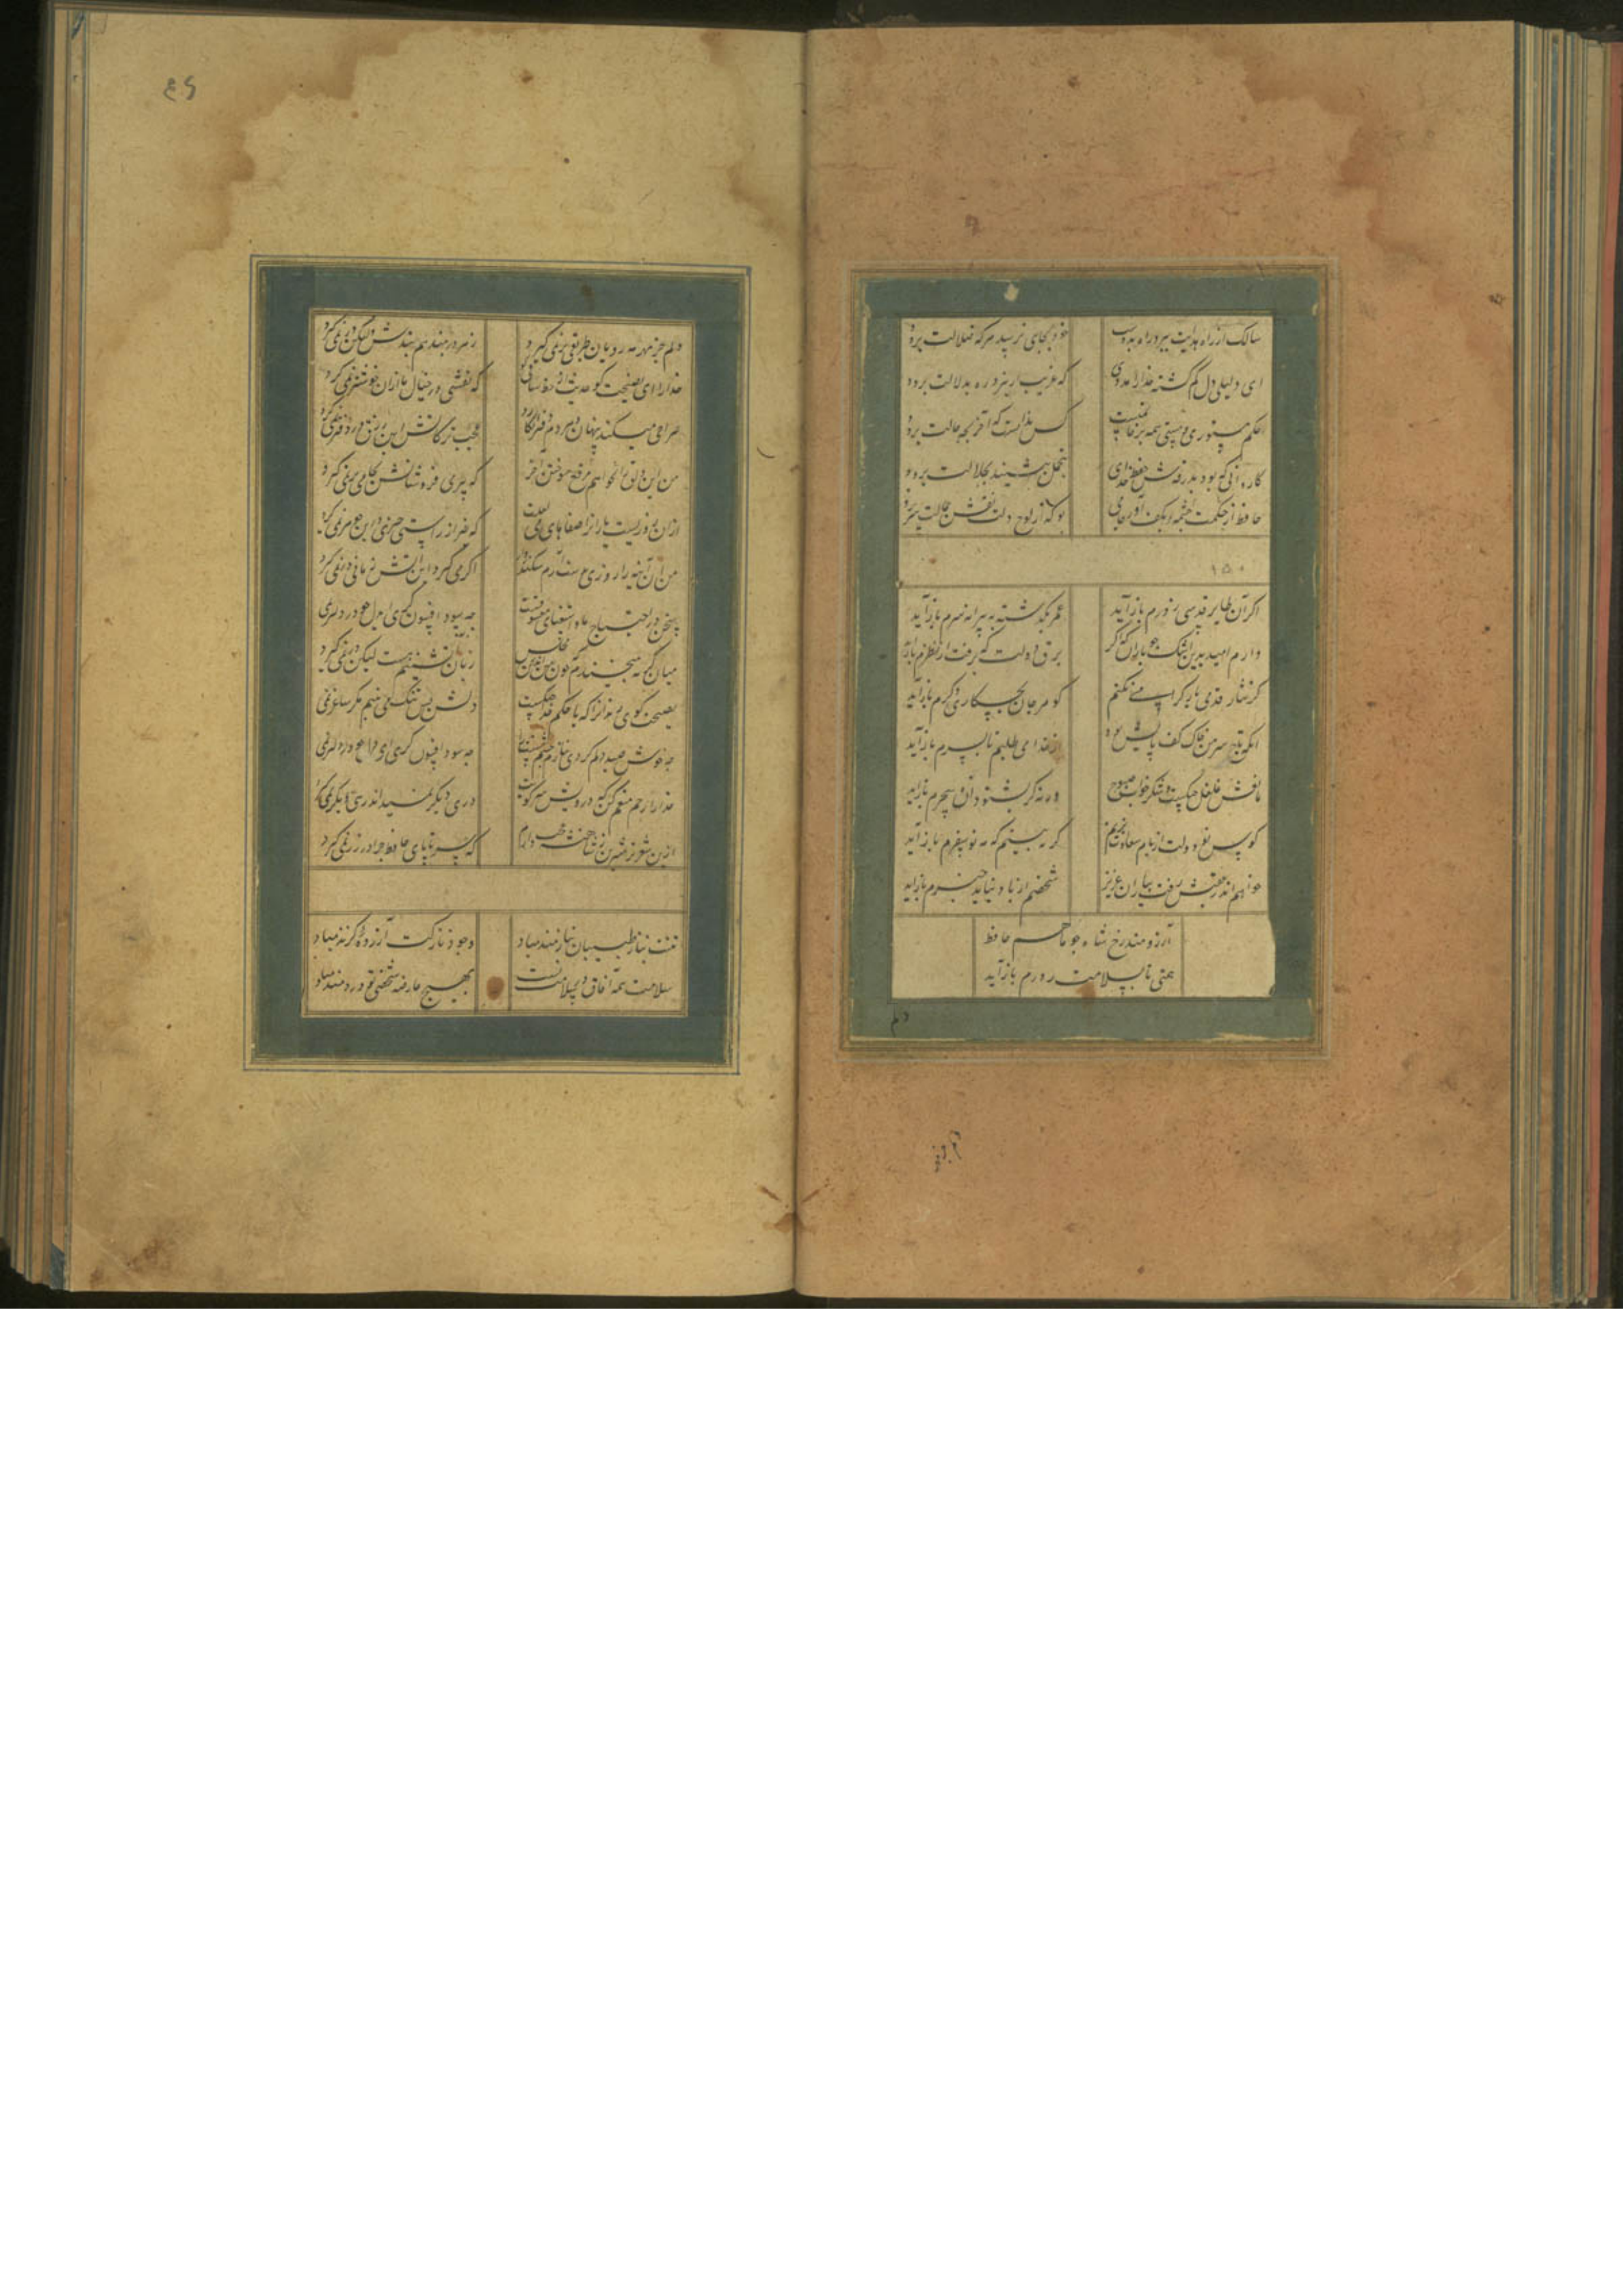 سالک از راه هدایت ببرد راه بدوست
خود بجای نرسد هرکه ضلالت برود
ای دلیل دل گم گشته خدا را مددی
که غریب ار نبرد ره بدلالت برود
حکم مستوری و مستی همه بر خاتمتست
کس ندانست که آخر بچه حالت برود
کاروانی که بود بدرقه‌اش حفظ خدای
بتجمل بنشیند بجلالت برود
حافظ از چشمه حکمت بکف آور جامی
بو که از لوح دلت نقش جهالت برود
۱۵۰
اگر آن طایر قدسی ز درم باز آید
عمر بگذشته به پیرانه سرم باز آید
دارم امید بدین اشک چو باران که اگر
برق دولت که برفت از نظرم باز
گر نثار قدمی یار گرامی نکنم
گو هر جان بچکار دگرم باز آید
آنکه تاج سر من خاک کف پایش بود
از خدا می طلبم تا بسرم باز آید
مانعش غلغل چنگست و شکر خواب صبوح
ورنه گر بشنود آه سحرم باز آید
کوس نو دولتی از بام سعادت بزنم
گر ببینم که مه نو سفرم باز آید
خواهم اندر عقبش رفت بیاران عزیز
شخصم ار باز نیاید خبرم باز آید
آرزومند رخ شاه چو ماهم حافظ
همتی تا بسلامت ز درم باز آید
دلم جز مهر مه رویان طریقی بر نمی گیرد
ز هر در میدهم پندش ولیکن در نمی گیرد
خدا را ای نصیحت گو حدیث از خط ساقی
که نقشی در خیال ما از آن خوشتر نمی گیرد
صراحی میکشم پنهان و مردم دفتر انگارد
عجب گر آتش این زرق در دفتر نمی گیرد
من این دلق را خواهم سوختن آخر
که پیر می فروشانش بجامی بر نمی گیرد
از آن رو هست یاران را صفاها با می لعلت
که غیر از راستی نقشی در این جوهر نمی گیرد
من آن آینه را روزی بدست آرم سکندر
اگر می گیرد این آتش زمانی ور نمی گیرد
سخن در احتیاج ما و استغنای معشوقست
چه سود افسون گری ای دل چو در دلبری
میان گریه میخندم که چون شمع اندرین مجلس
زبان آتشینم هست لیکن در نمی گیرد
نصیحت گوی رندان را که با حکم خدا جنگست
دلش بس تنگ می بینم مگر ساغر نمی
چه خوش صید دلم کردی بنازم چشم مستت را
خدا را رحم ای منعم که درویش سر کویت
دری دیگر نمیداند رهی دیگر نمی گیرد
ازین شعر تر شیرین ز شاهنشه عجب دارم
که سر تا پای حافظ چرا در زر نمی گیرد
تنت بناز طبیبان نیازمند مباد
وجود نازکت آزرده گزند مباد
سلامت همه آفاق در سلامت تست
بهیچ عارضه شخص تو دردمند مباد